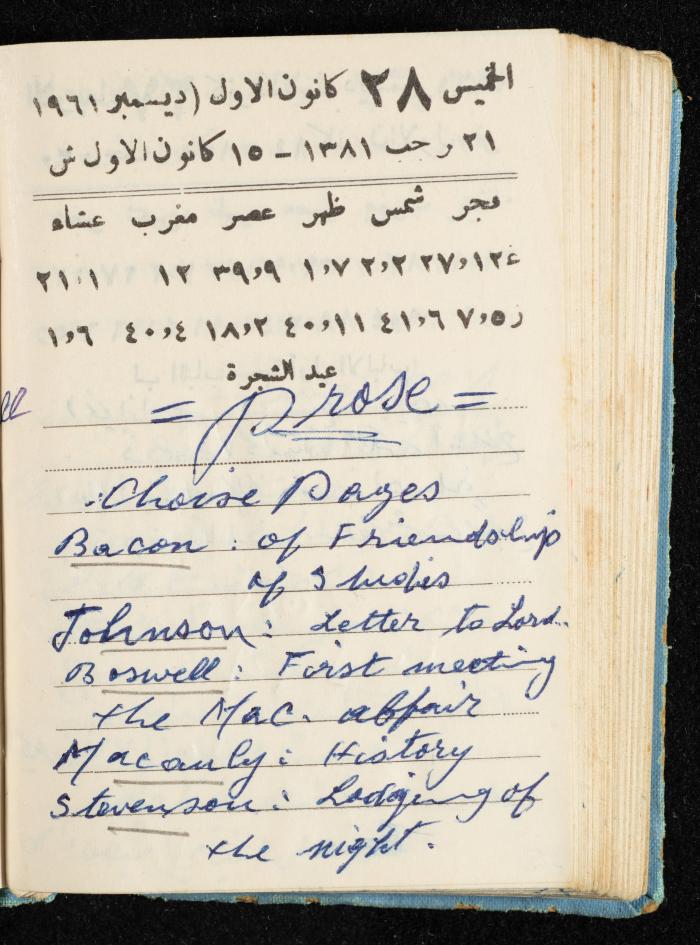 الخميس ٢٨ كانون الاول (ديسمبر ١٩٦١
٢١ رجب ١٣٨١ – ١٥ كانون الاول ش
فجر شمس ظهر عصر مغرب عشاء
غ١٢،٢٧ ٢،٢ ٧،١ ٩،٣٩ ١٢ ١،٢١
ز٥،٧ ٦،٤١ ١١،٤٠ ٢،١٨ ٤،٤٠ ٦،١
عيد الشجرة
= Prose =
Choise Pages
Bacon : of Friendship
of Studies
Johnson : Letter to Lord..
Boswell : First meeting
the Mac. affair
Macauly : History
Stevenson : Lodging of
the night.